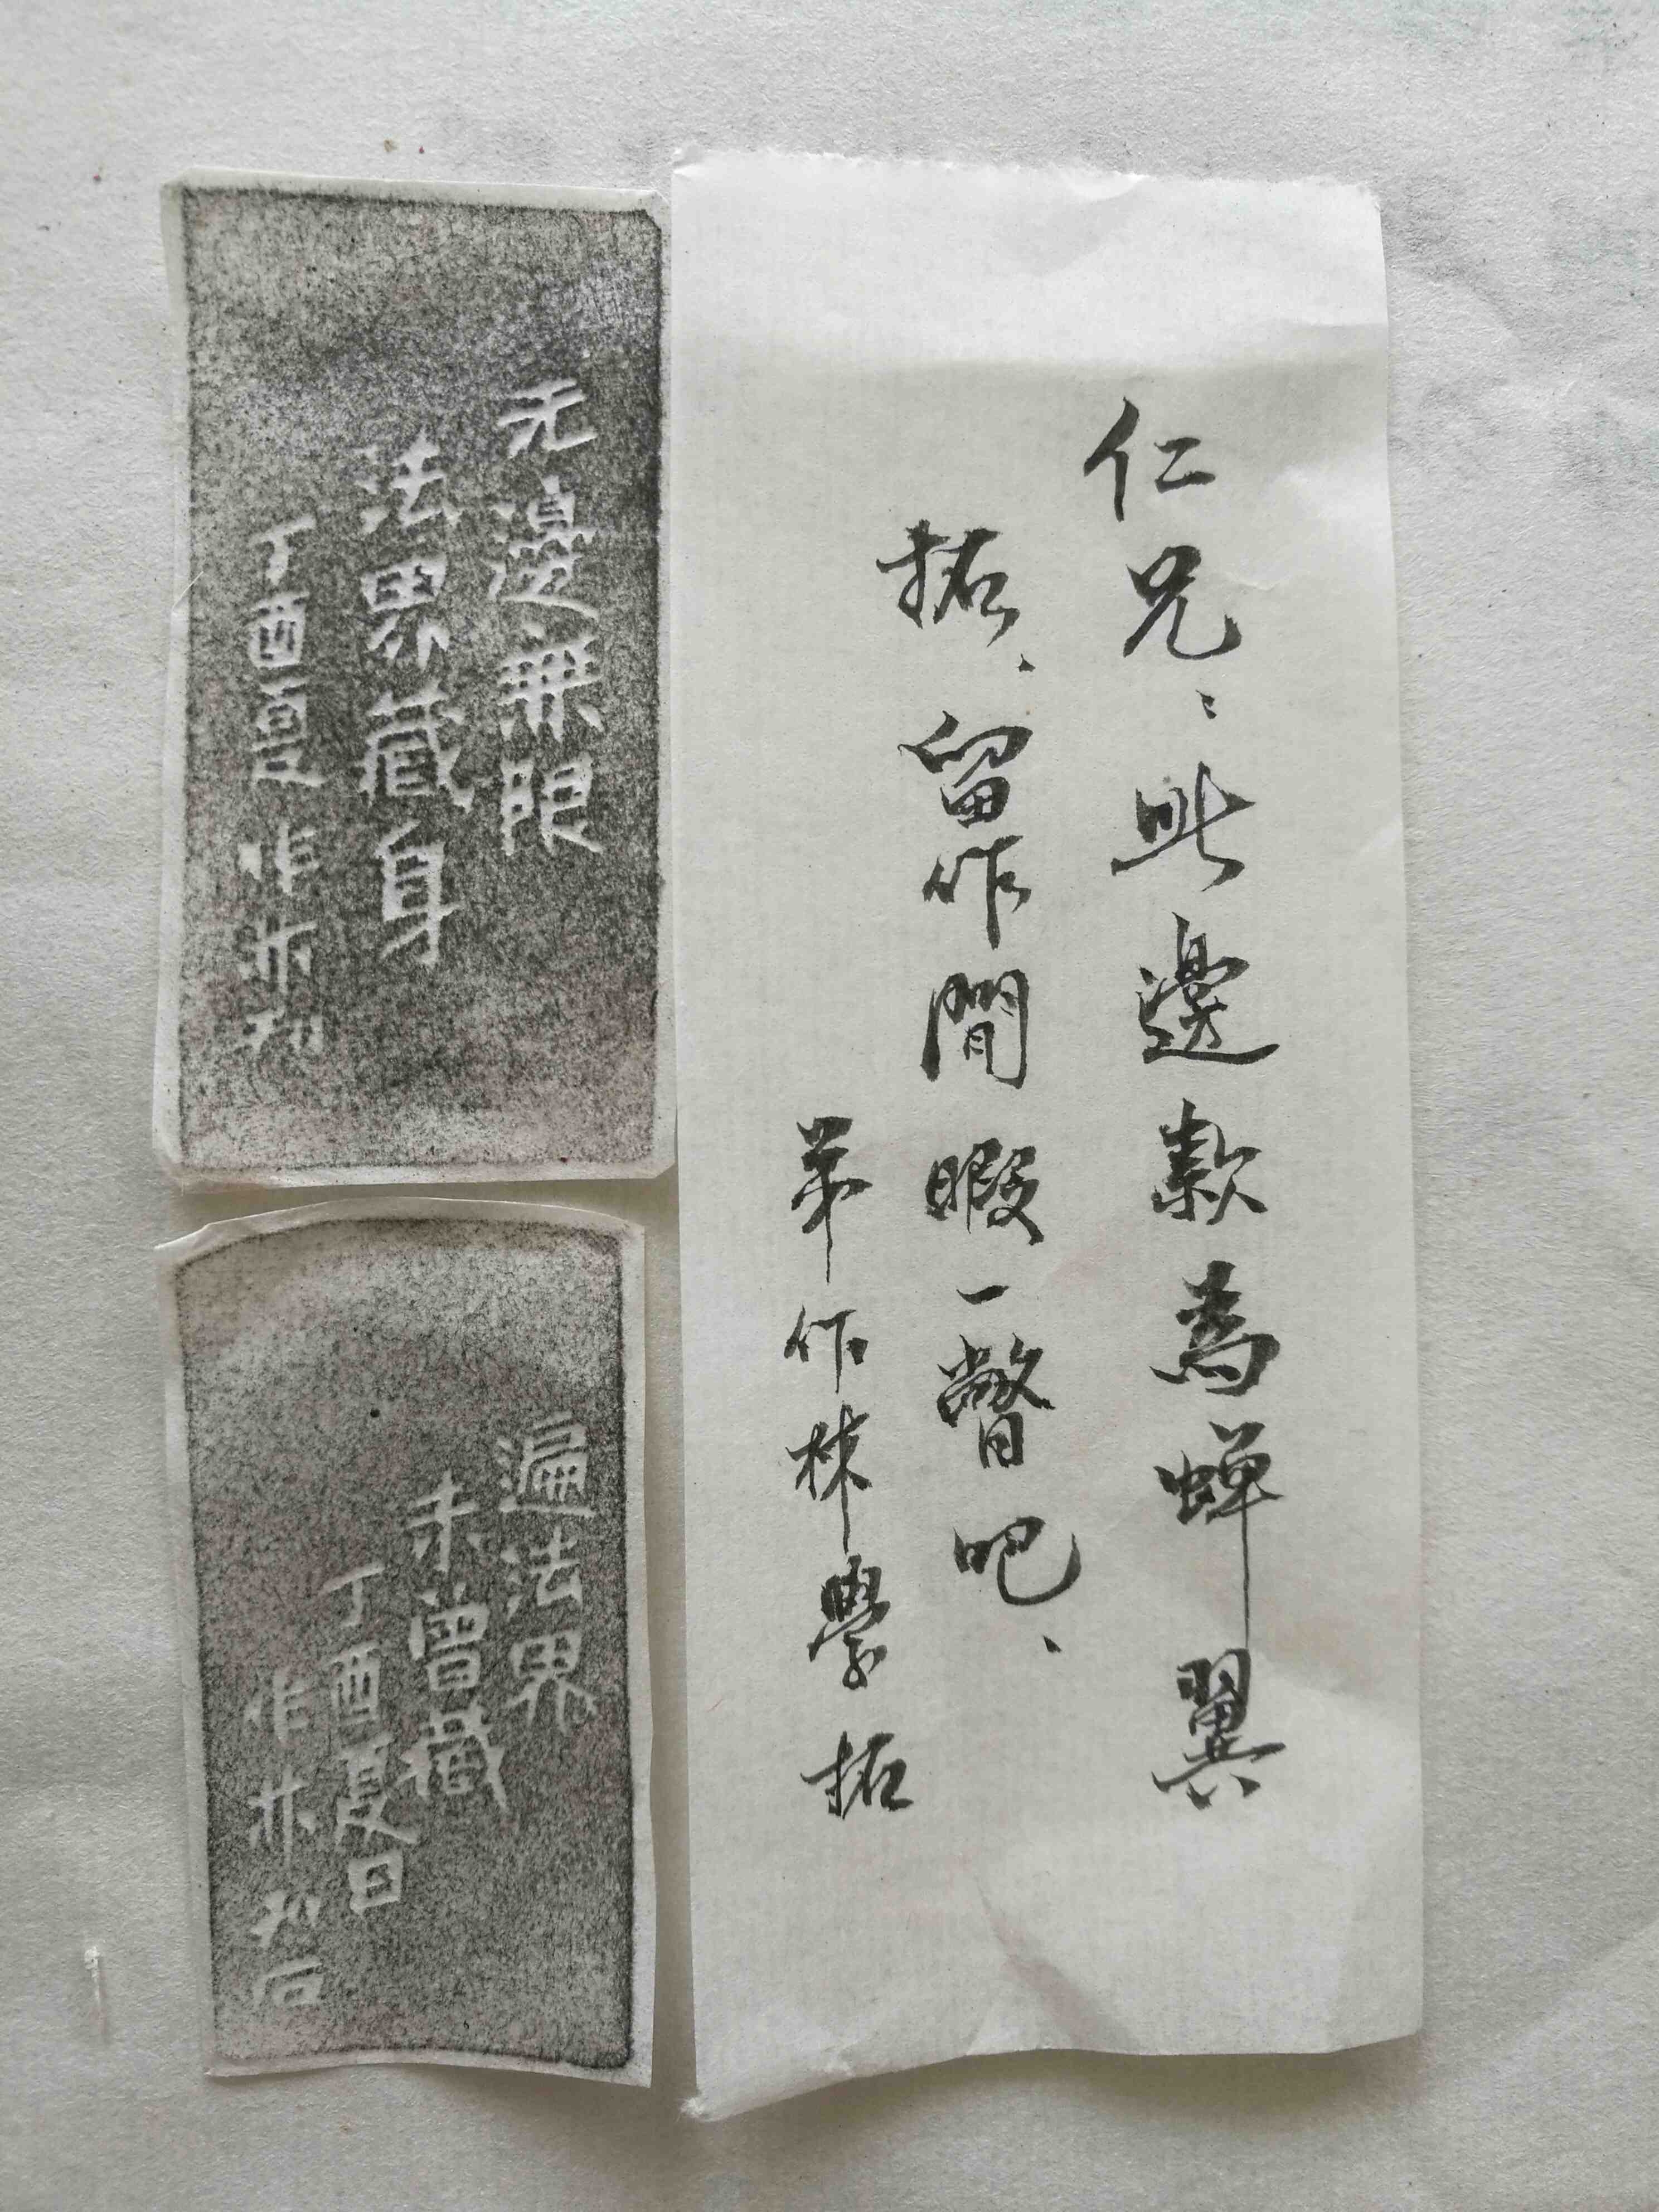 仁兄：此邊款為蝉翼
拓、留作閒暇一瞥吧、
弟作林學拓
无邊無限
法界藏身
丁酉夏作
遍法界
未曾藏
丁酉夏日
作
石